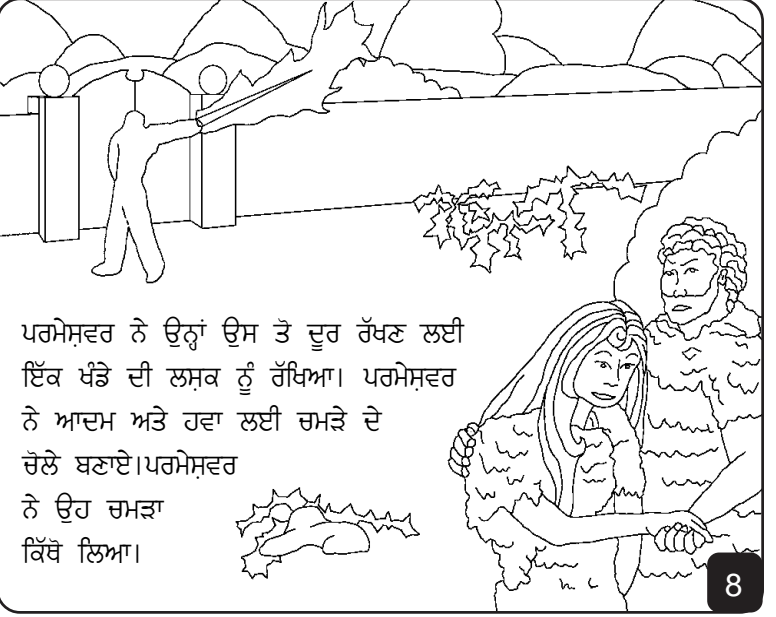 ਪਰਮੇਸ਼ਵਰ ਨੇ ਉਨ੍ਹਾਂ ਉਸ ਤੋ ਦੂਰ ਰੱਖਣ ਲਈ
ਇੱਕ ਖੰਡੇ ਦੀ ਲਸ਼ਕ ਨੂੰ ਰੱਖਿਆ। ਪਰਮੇਸ਼ਵਰ
ਨੇ ਆਦਮ ਅਤੇ ਹਵਾ ਲਈ ਚਮੜੇ ਦੇ
ਚੋਲੇ ਬਣਾਏ।ਪਰਮੇਸ਼ਵਰ
ਨੇ ਉਹ ਚਮੜਾ
ਕਿੱਥੋ ਲਿਆ।
8